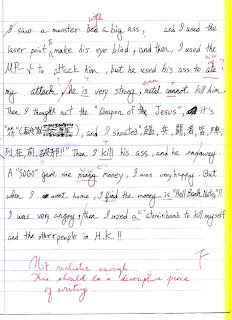 I saw a monster had a big ass, and I used the
laser point make his eye blind, and then, I used the
MP-5 to attack him, but he used his ass to ate
my attack, he is very strong, metal cannot kill him.
Then I thought out the "Weapon of the Jesus", It's
and I shouted "臨, 兵, 鬥, 者, 皆, 陣,
列, 在, 前" Then I kill his ass, and he runaway.
A "SOGO" gave me many money, I was very happy. But
when I went home, I find the money is "Hell Bank Notes"!!
I was very angry, then I used a atomic bomb to kill myself
and the other people in H.K.!!
Not realistic enough.
This should be a descriptive piece
of writing.
F